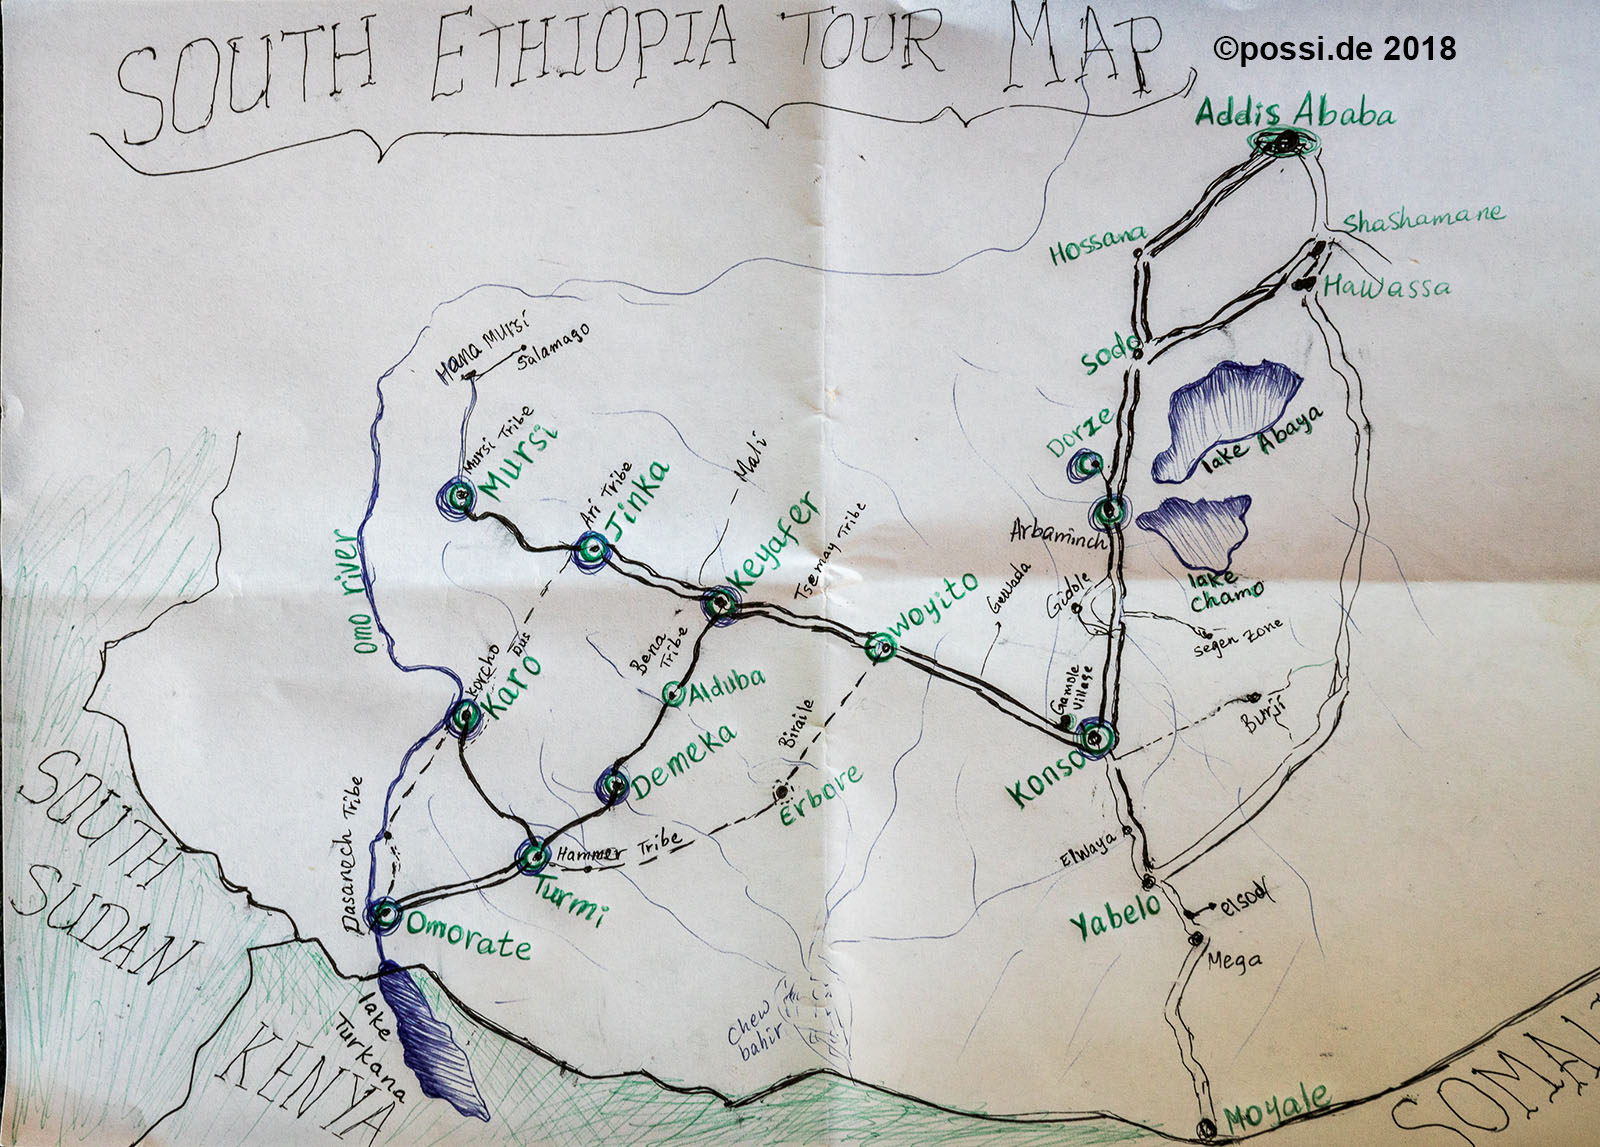 SOUTH ETHIOPIA TOUR MAP
©possi.de 2018
Addis Ababa
Shashamane
Hossana
Hawassa
Sodo
Hana Mursi
Salamago
lake Abaya
Dorze
Mursi Tribe
Mursi
Ari Tribe
Jinka
Mali
Keyafer
Tsemay Tribe
Arbaminch
lake
chamo
omo river
Woyito
Gewada
Gidole
segen Zone
Korcho
Dus
Karo
Bena
Tribe
Alduba
Gamole
Village
Konso
Burji
Biraile
Demeka
Erbore
SOUTH
SUDAN
Dasanech Tribe
Hammer Tribe
Turmi
Elwaya
Yabelo
elsod
Mega
Omorate
lake
Turkana
Chew
bahir
KENYA
Moyale
SOMAL